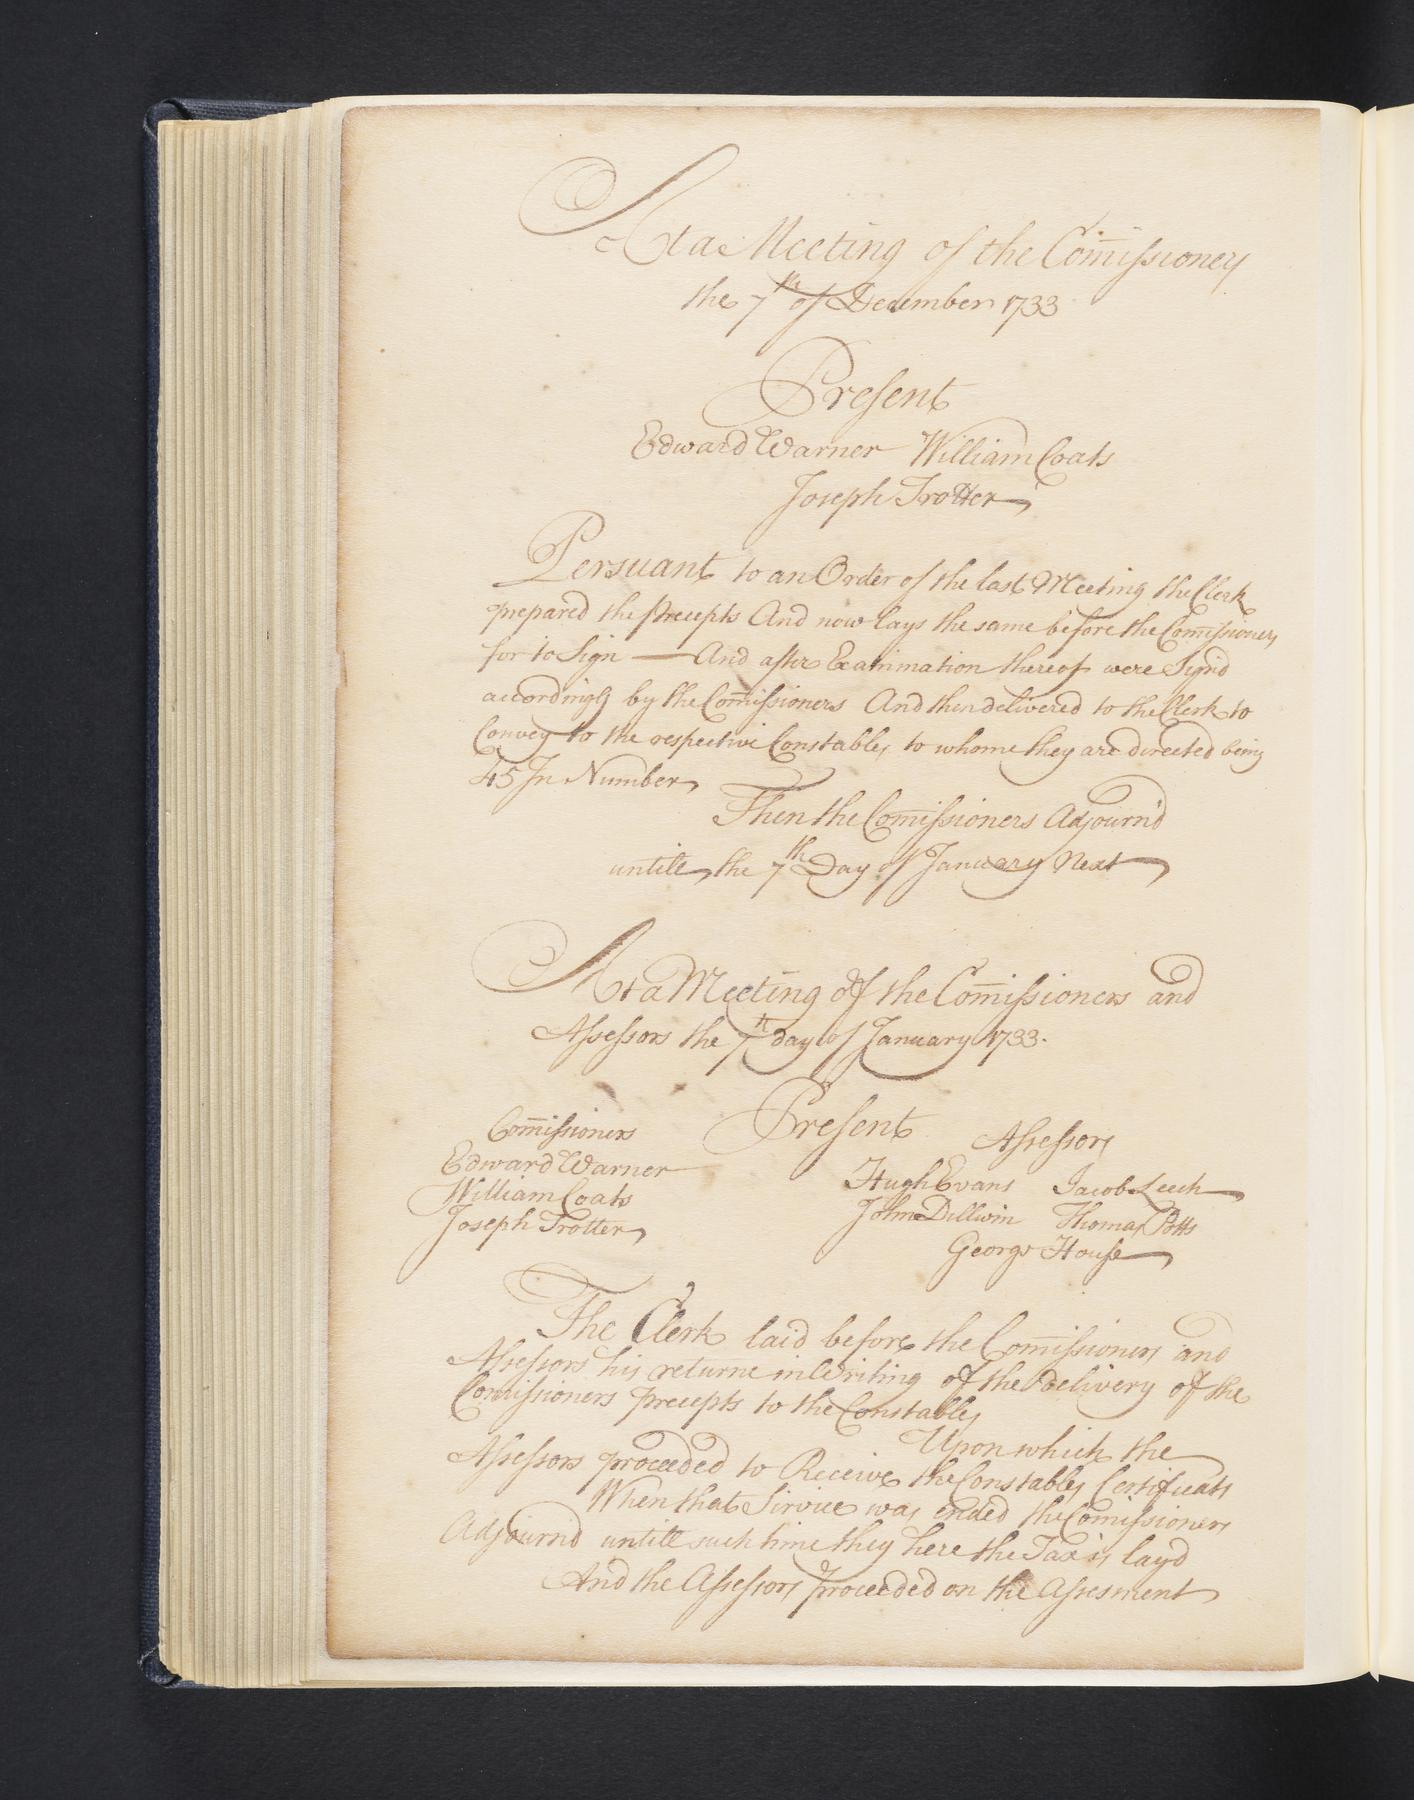 At a Meeting of the Com̄issioners
the 7th of December 1733
Present
Edward Warner William Coats
Joseph Trotter
Persuant to an Order of the last Meeting the Clerk
prepared the Precepts And now lays the same before the Com̄issioners
for to Sign — And after Examination thereof were Sign'd
accordingly by the Com̄issioners And then delivered to the Clerk to
Convey to the respective Constables to whome they are directed being
45 In Number
Then the Com̄issioners Adjourn'd
untill the 7th Day of January Next
At a Meeting of the Com̄issioners and
Assessors the 7th day of January 1733.
Present
Com̄issioners
Edward Warner
William Coats
Joseph Trotter
Assessors
Hugh Evans Jacob Leech
John Dillwin Thomas Potts
George House
The Clerk laid before the Com̄issioners and
Assessors his returne in Writing of the Delivery of the
Com̄issioners precepts to the Constables
Upon which the
Assessors proceeded to Receive the Constables Certificats
When that Service was ended the Com̄issioners
Adjourn'd untill such time they here the Tax is lay'd
And the Assessors proceeded on the Assesment